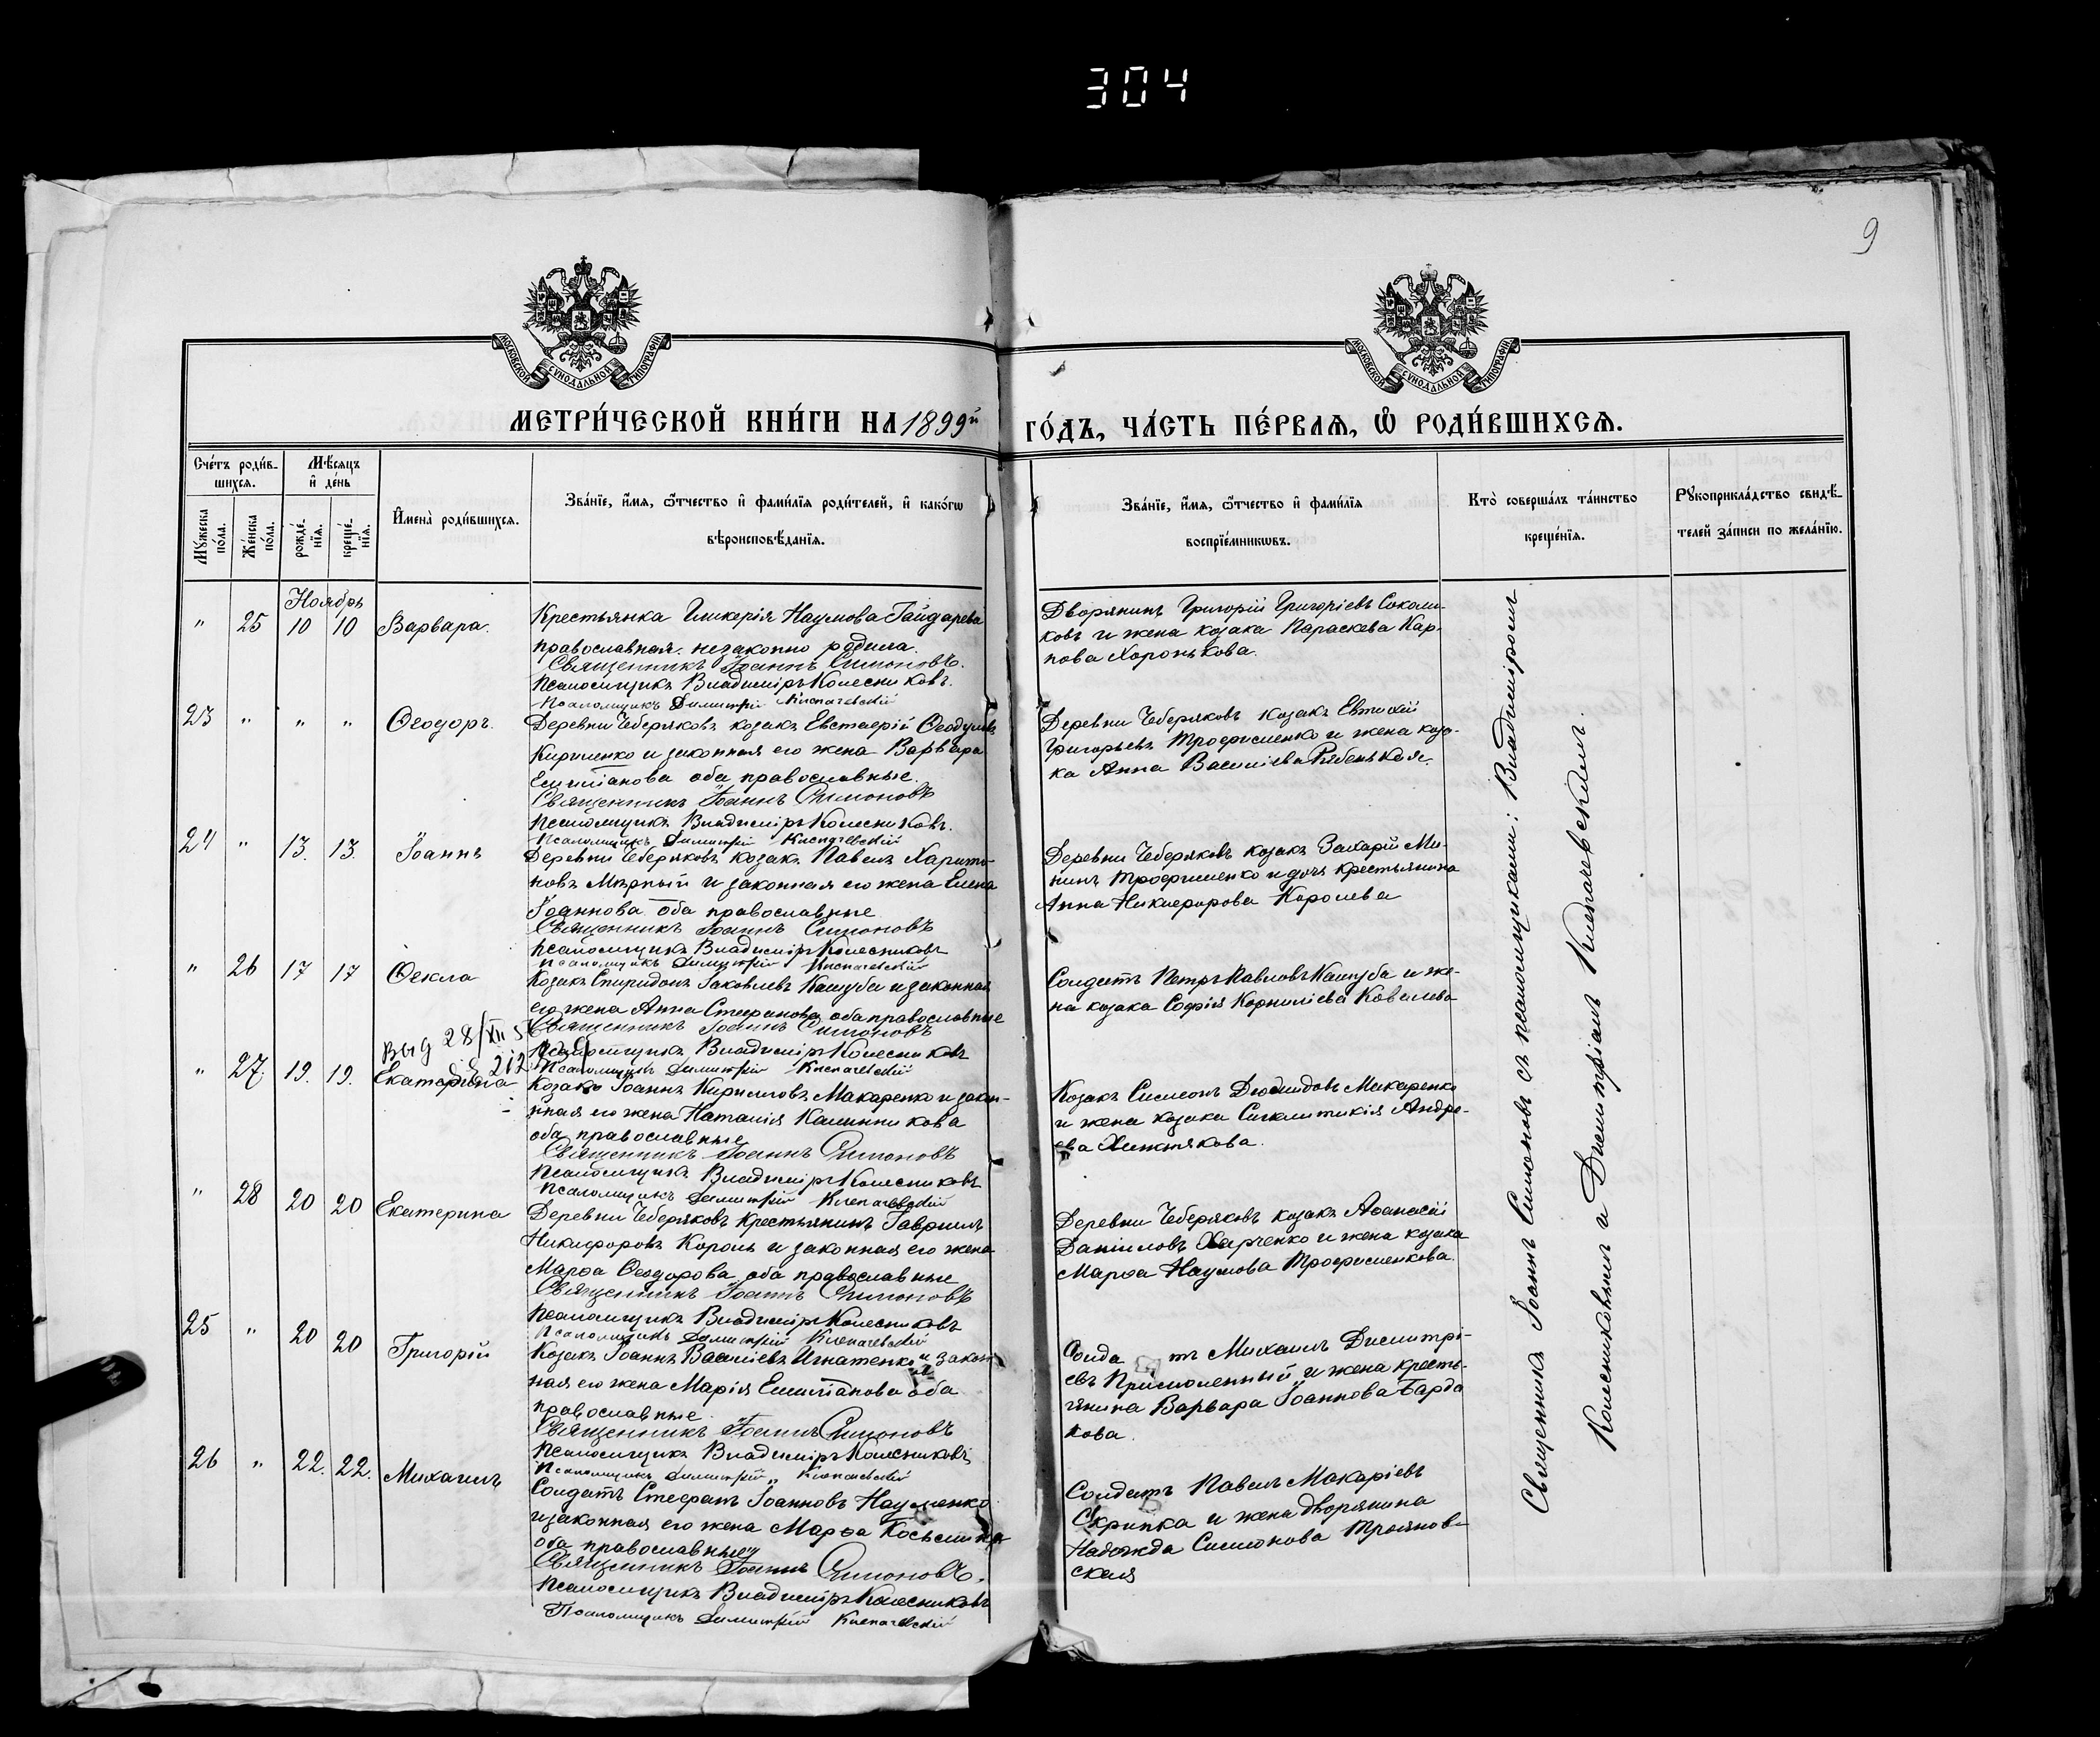 304
9
МОСКОВСКОЙ СѴНОДАЛЬНОЙ ТИПОГРАФІИ
МОСКОВСКОЙ СѴНОДАЛЬНОЙ ТИПОГРАФІИ
МЕТРИ́ЧЕСКОЙ КНИ́ГИ НА 1899й
ГО́ДЪ, ЧА́СТЬ ПЕ́РВАѦ, Ѽ РОДИ́ВШИХСѦ.
Сче́тъ роди́в-
шихсѧ.
Мѣ́сѧцъ
и҆ де́нь
Мꙋ́жеска
по́ла.
Же́нска
по́ла.
рожде́-
нїѧ.
креще́-
нїѧ.
И҆мена̀ роди́вшихсѧ.
Зва́нїе, и҆́мѧ, ѻ҆́тчество и҆ фами́лїѧ роди́телей, и҆ како́гѡ
вѣроисповѣ́данїѧ.
Зва́нїе, и҆́мѧ, ѻ҆́тчество и҆ фами́лїѧ
воспрїе́мникѡвъ.
Кто̀ соверша́лъ та́инство
креще́нїѧ.
Рꙋкоприкла́дство свидѣ́-
телей за́писи по жела́нїю.
Ноябрь
" 25 10 10 Варвара.
Крестьянка Гликерія Наумова Гайдарева
православная. незаконно родила.
Священникъ Іоаннъ Симоновъ.
Псаломщикъ Владиміръ Колесниковъ.
Псаломщикъ Димитрій Клепачевскій
Дворянинъ Григорій Григоріевъ Соколи-
ковъ и жена козака Параскева Кар-
пова Харонькова.
23 " " " Ѳеодоръ.
Деревни Чеберяковъ козакъ Евстафій Ѳеодуловъ
Кириленко и законная его жена Варвара
Емиліанова оба православные.
Священникъ Іоаннъ Симоновъ
Псаломщикъ Владиміръ Колесниковъ.
Псаломщикъ Димитрій Клепачевскій
Деревни Чеберяковъ козакъ Евтихій
Григорьевъ Трофименко и жена коза-
ка Анна Василіева Рябенькая.
24 " 13. 13. Іоаннъ
Деревни Чеберяковъ козакъ Павелъ Харито-
новъ Мирный и законная его жена Елена
Іоаннова оба православные
Священникъ Іоаннъ Симоновъ
Псаломщикъ Владиміръ Колесниковъ
Псаломщикъ Димитрій Клепачевскій
Деревни Чеберяковъ козакъ Захарій Ми-
нинъ Трофименко и дочь крестьянина
Анна Никифорова Королева
" 26 17 17 Ѳекла
Козакъ Спиридонъ Іаковлевъ Кашуба и законная
его жена Анна Стефанова оба православные
Священникъ Іоаннъ Симоновъ
Псаломщикъ Владиміръ Колесниковъ
Псаломщикъ Димитрій Клепачевскій
Солдатъ Петръ Павловъ Кашуба и же-
на козака Софія Корниліева Ковалева
Выд 28/XII
" 27. 19. 19. Екатерина
Козакъ Іоаннъ Кирилловъ Макаренко и закон-
нная его жена Наталія Калинникова
оба православные
Священникъ Іоаннъ Симоновъ
Псаломщикъ Владиміръ Колесниковъ
Псаломщикъ Димитрій Клепачевскій
Козакъ Симеонъ Діомидовъ Макаренко
и жена козака Синклитикія Андре-
ева Хижнякова.
" 28 20 20 Екатерина
Деревни Чеберяковъ крестьянинъ Гавріилъ
Никифоровъ Король и законная его жена
Марѳа Ѳеодорова оба православные
Священникъ Іоаннъ Симоновъ
Псаломщикъ Владиміръ Колесниковъ
Псаломщикъ Димитрій Клепачевскій
Деревни Чеберяковъ козакъ Аѳанасій
Даніиловъ Харченко и жена козака
Марѳа Наумова Трофименкова.
25 " 20 20 Григорій
Козакъ Іоаннъ Василіевъ Игнатенко и закон
ная его жена Марія Емиліанова оба
православные.
Священникъ Іоаннъ Симоновъ
Псаломщикъ Владиміръ Колесниковъ
Псаломщикъ Димитрій Клепачевскій
Солда тъ Михаилъ Димитрі-
евъ Присмоленный и жена кресть-
янина Варвара Іоаннова Барда
кова.
26 " 22. 22. Михаилъ
Солдатъ Стефанъ Іоанновъ Науменко
и законная его жена Марѳа Косьмина
оба православные
Священникъ Іоаннъ Симоновъ.
Псаломщикъ Владиміръ Колесниковъ
Псаломщикъ Димитрій Клепачевскій
Солдатъ Павелъ Макаріевъ
Скрипка и жена дворянина
Надежда Симеонова Трояновъ-
ская
Священникъ Іоаннъ Симоновъ съ псаломщиками: Владиміромъ
Колесниковымъ и Димитріемъ Клепачевскимъ.